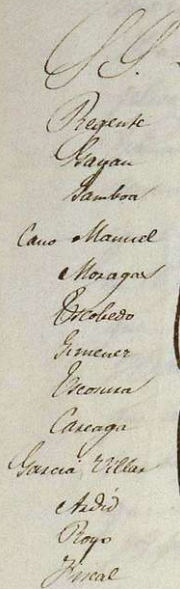 S.S.
Regente
Gayan
Gamboa
Cano Manuel
Moragas
Escobedo
Gimenez
Escosura
Careaga
Garcia Villar
Ardid
Royo
Fiscal